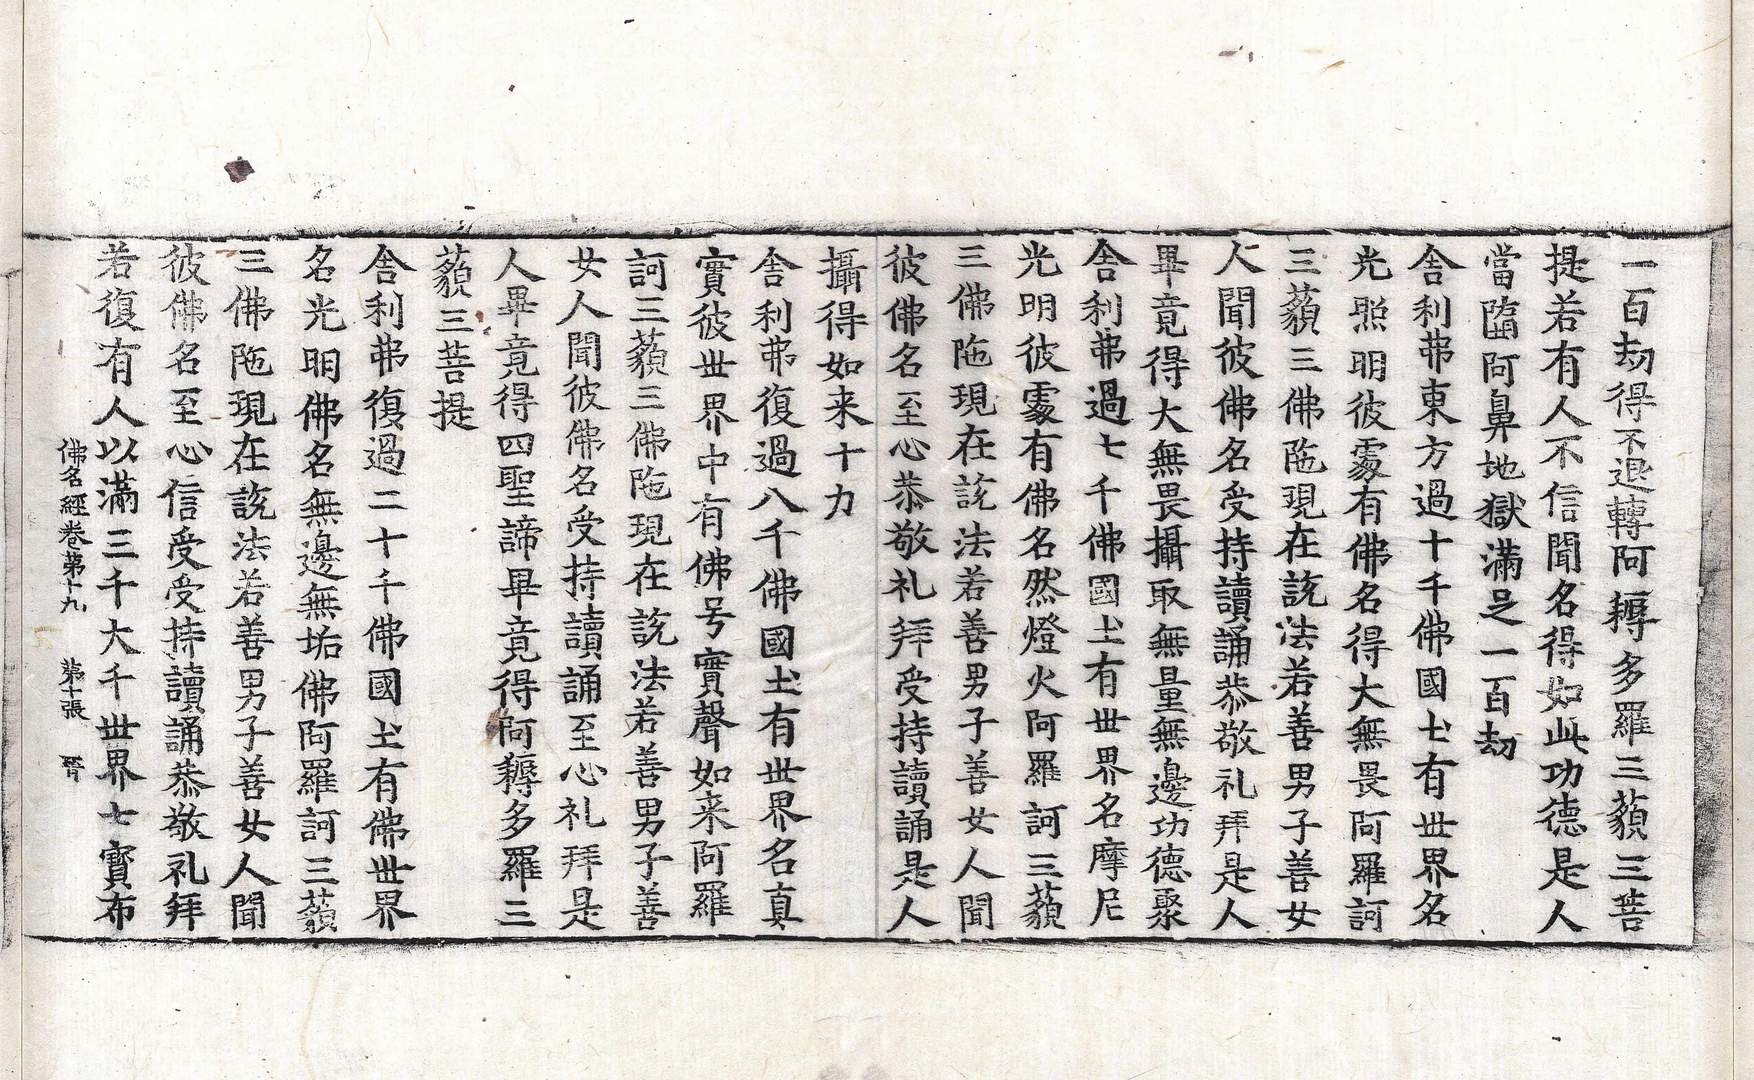 一百劫得不退轉阿耨多羅三藐三菩
提若有人不信聞名得如此功德是人
當墮阿鼻地獄滿足一百劫
舍利弗東方過十千佛國土有世界名
光照明彼處有佛名得大無畏阿羅訶
三藐三佛陁現在說法若善男子善女
人聞彼佛名受持讀誦恭敬礼拜是人
畢竟得大無畏攝取無量無邊功德聚
舍利弗過七千佛國土有世界名摩尼
光明彼處有佛名然燈火阿羅訶三藐
三佛陁現在說法若善男子善女人聞
彼佛名至心恭敬礼拜受持讀誦是人
攝得如来十力
舍利弗復過八千佛國土有世界名真
實彼世界中有佛号實聲如来阿羅
訶三藐三佛陁現在說法若善男子善
女人聞彼佛名受持讀誦至心礼拜是
人畢竟得四聖諦畢竟得阿耨多羅三
藐三菩提
舍利弗復過二十千佛國土有佛世界
名光明佛名無邊無垢佛阿羅訶三藐
三佛陁現在說法若善男子善女人聞
彼佛名至心信受受持讀誦恭敬礼拜
若復有人以滿三千大千世界七寳布
佛名經卷第十九 第十張